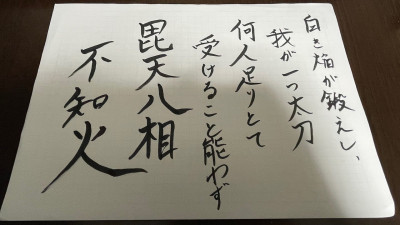 白き焔が鍛えし、
我が一つ太刀
何人足りとて
受けること能わず
毘天八相
不知火